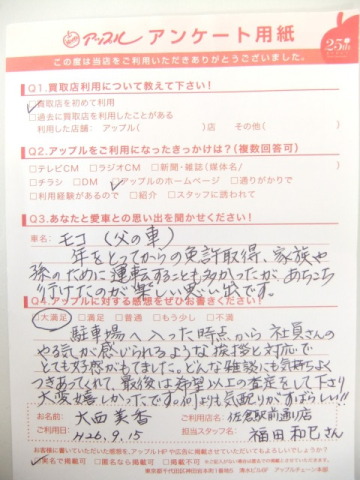 アップル アンケート用紙
25th
この度は当店をご利用いただきありがとうございました。
Q1.買取店利用について教えて下さい!
☑買取店を初めて利用
□過去に買取店を利用したことがある
利用した店舗: アップル( )店 その他( )
Q2.アップルをご利用になったきっかけは?(複数回答可)
□テレビCM □ラジオCM □新聞・雑誌(媒体名/ )
□チラシ □DM ☑アップルのホームページ □通りがかりで
□利用経験があるので □紹介 □スタッフに誘われて
Q3.あなたと愛車との思い出を聞かせください!
車名: モコ (父の車)
年をとってからの免許取得、家族や
孫のために運転することも多かったが、あちこち
行けたのが楽しい思い出です。
Q4.アップルに対する感想をぜひお書きください!
□大満足 □満足 □普通 □もう少し □不満
駐車場へ入った時点から社員さんの
やる気が感じられるような挨拶と対応で
とても好感がもてました。どんな雑談にも気持ちよく
つきあってくれて、最後は希望以上の査定をして下さり
大変嬉しかったです。何よりも気配りがすばらしい!!
お名前: 大西美香 ご利用店名: 佐倉駅前通り店
ご利用日: H26.9.15 担当スタッフ名: 福田和巳さん
お客様に書いていただいた感想を、アップルHPや広告に掲載させていただいてもよろしいでしょうか?
☑実名で掲載可 □匿名なら掲載可 □掲載不可
東京都千代田区神田松本町1番地5 清水ビル6F アップルチェーン本部